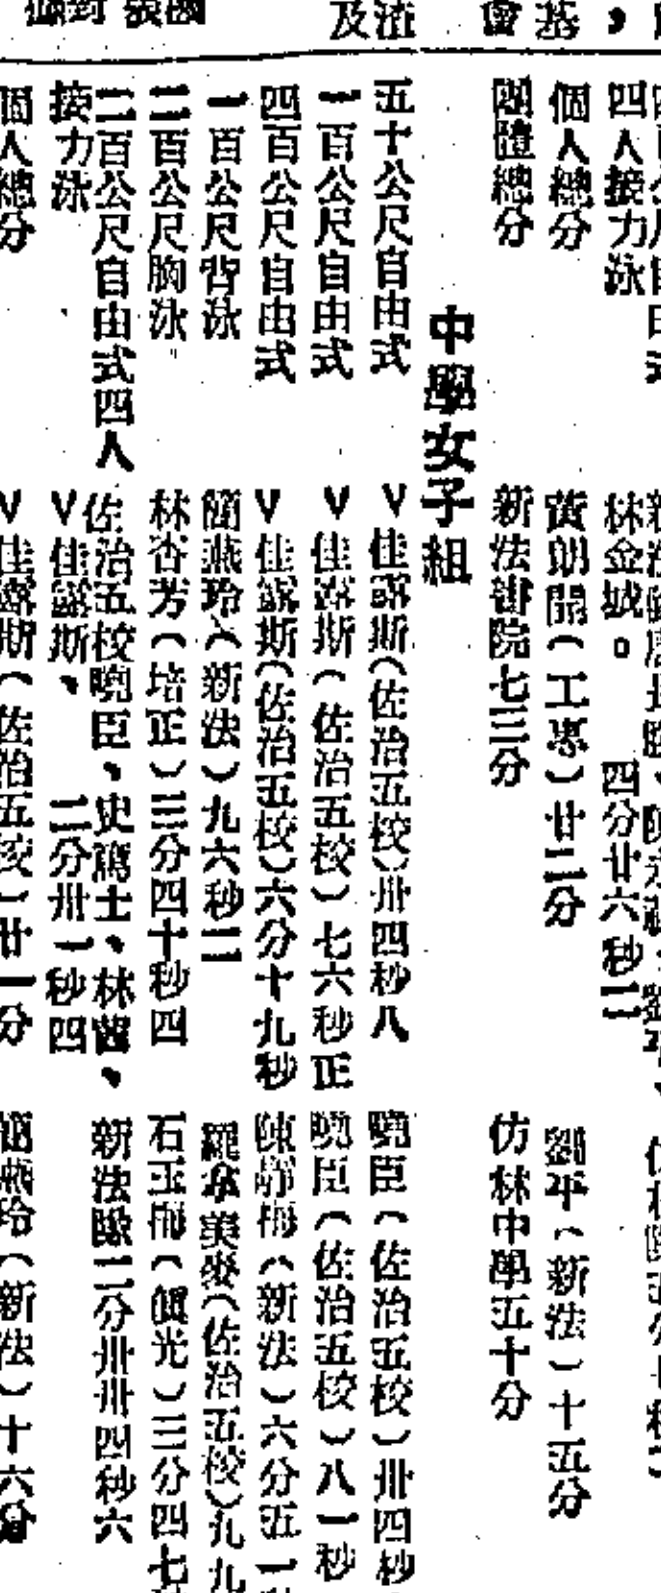 四人接力泳 林金城。 四分廿六秒二
個人總分 黃朗開(工專)廿二分 劉平(新法)十五分
團體總分 新法書院七三分 仿林中學五十分
中學女子組
五十公尺自由式 V佳露斯(佐治五校)卅四秒八 曉臣(佐治五校)卅四秒
一百公尺自由式 V佳露斯(佐治五校)七六秒正 曉臣(佐治五校)八一秒
四百公尺自由式 V佳露斯(佐治五校)六分十九秒 陳靜梅(新法)六分五一
一百公尺背泳 簡燕玲(新法)九六秒二 羅拿美麥(佐治五校)九九
二百公尺胸泳 林杏芳(培正)三分四十秒四 石玉梅(真光)三分四七
二百公尺自由式四人 佐治五校曉臣、史篤士、林茵、 新法隊二分卅卅四秒六
接力泳 V佳露斯、 二分卅一秒四
個人總分 V佳露斯(佐治五校)廿一分 簡燕玲(新法)十六分